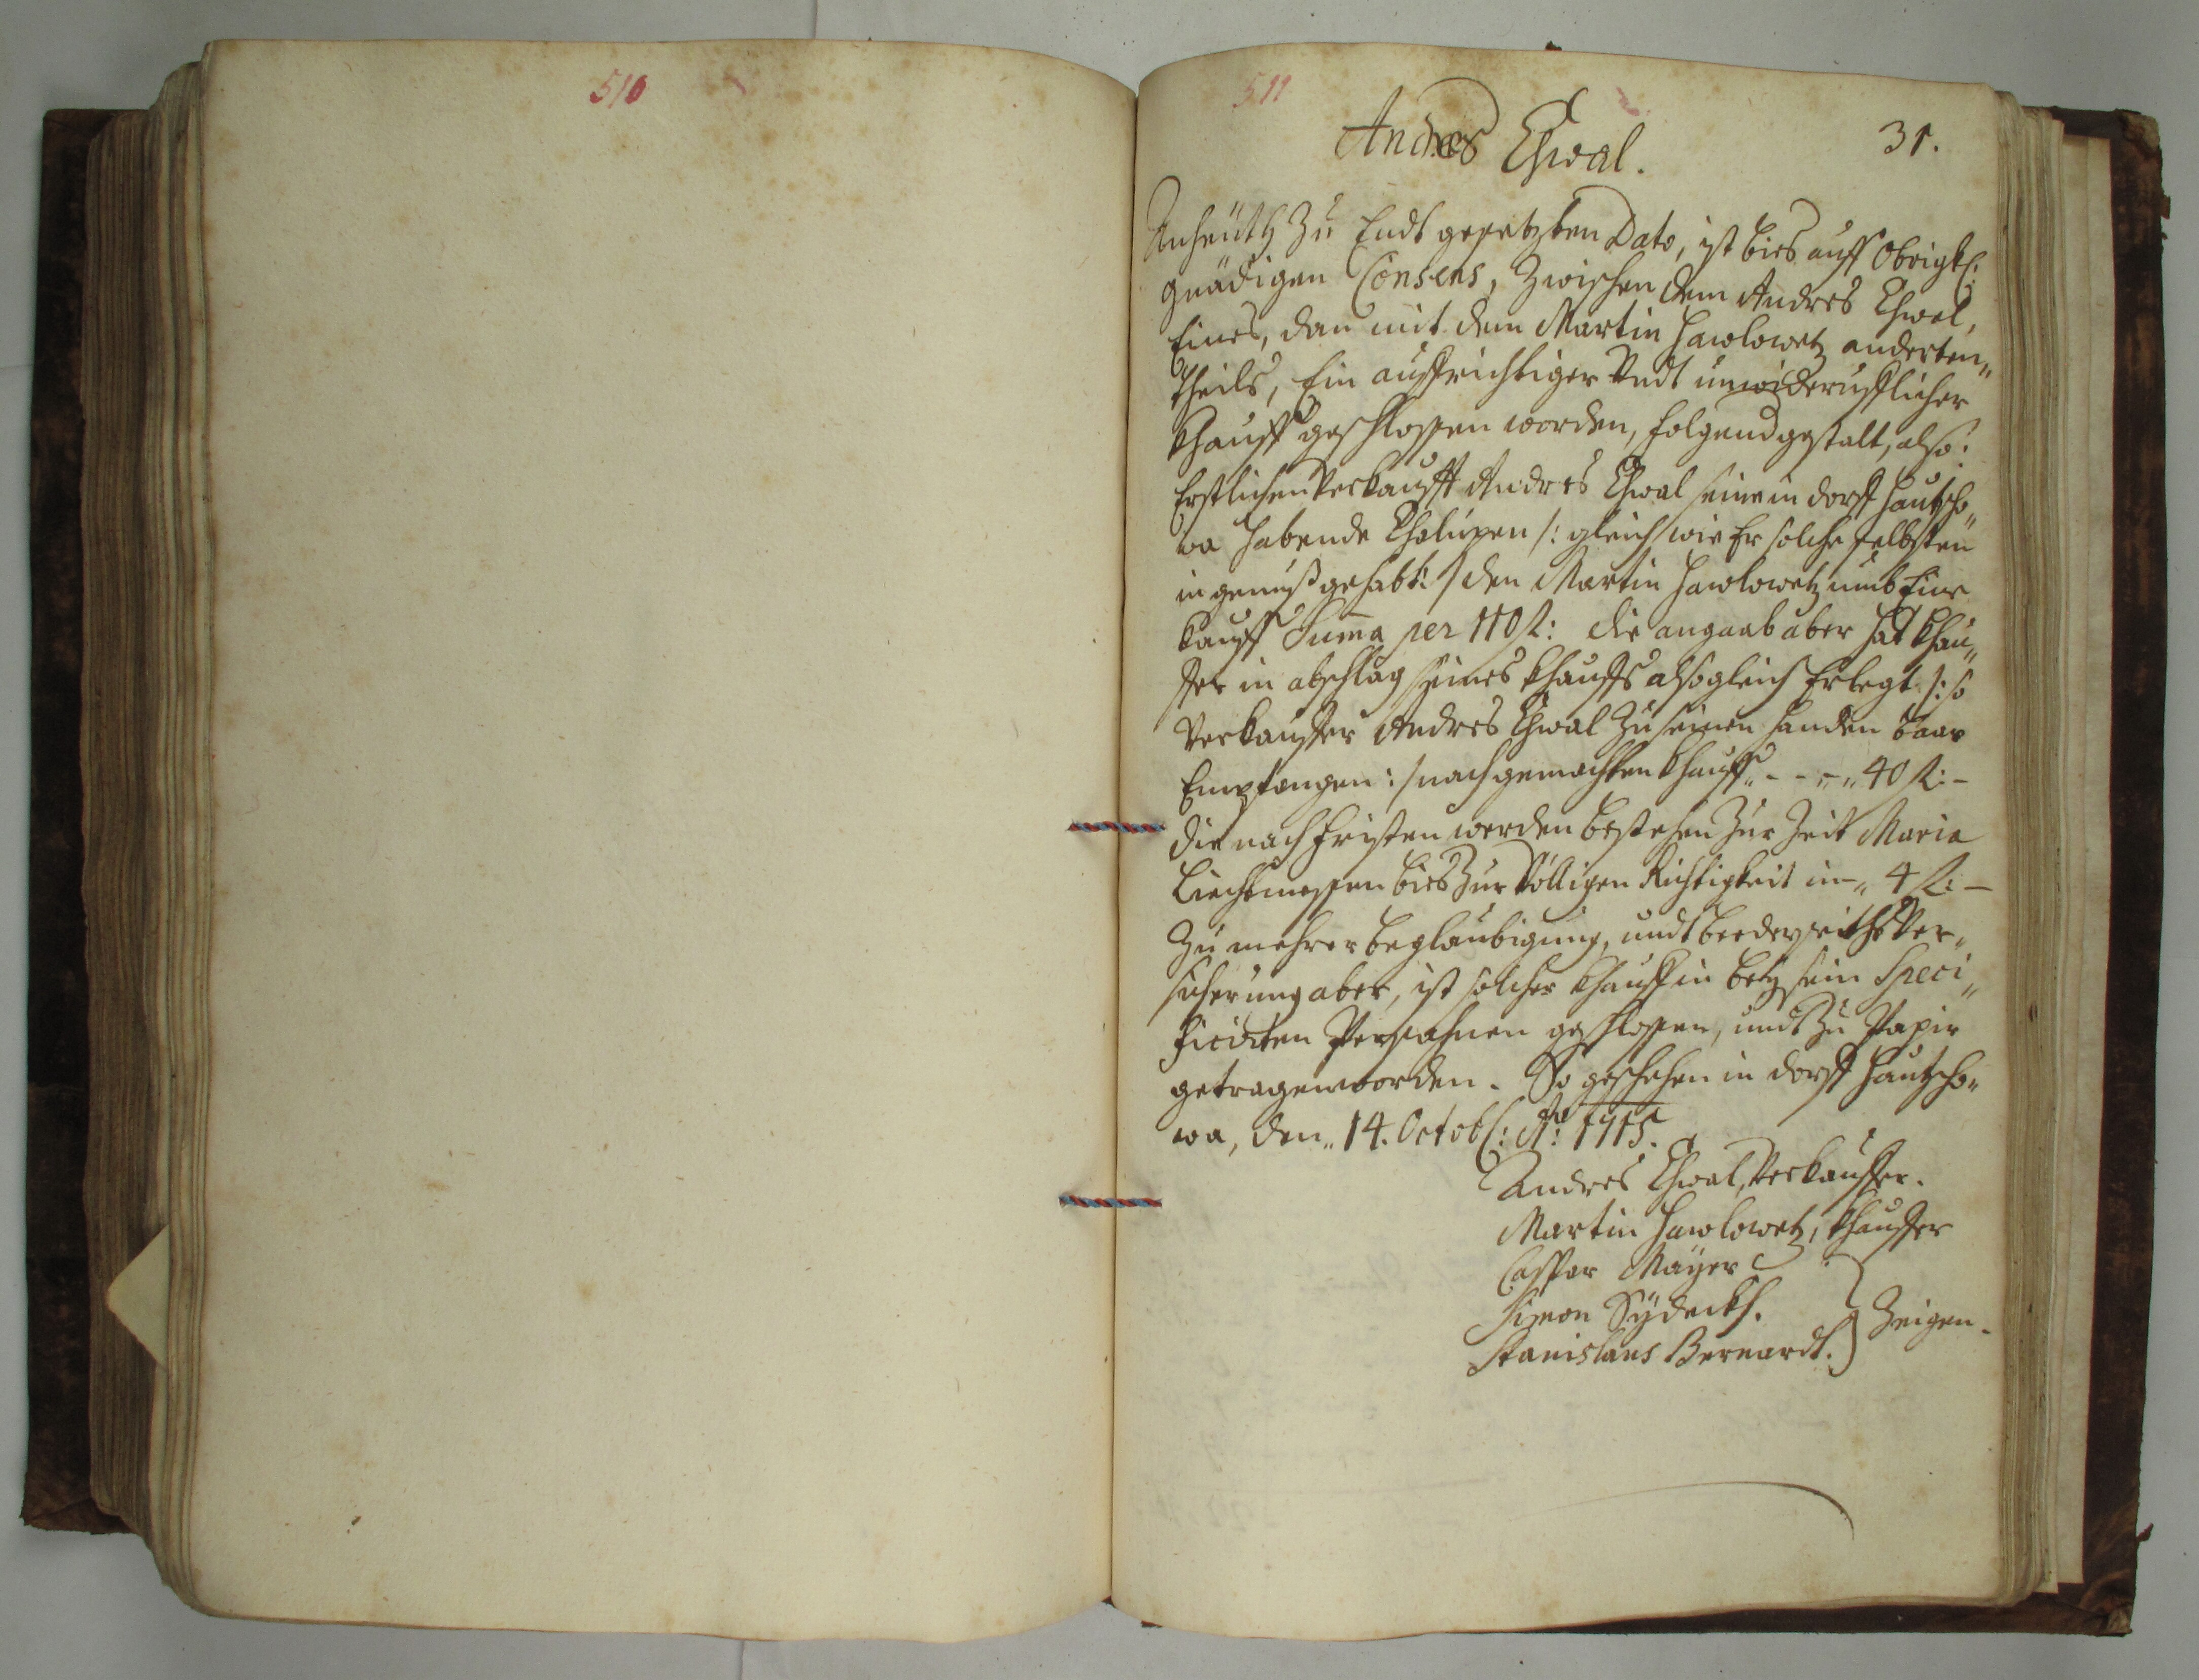 510
511
31.
Andres Chwal.
Anheüth zu Endt gesetzten Dato, ist bies auff Obrigk:
gnädigen Consens, zwischen dem Andres Chwal,
Eines, dan mit dem Martin Hawlowetz anderten„
theils, Ein auffrichtiger Undt unwiderrufflicher
Khauff geschlossen worden, folgend gestalt, also:
Erstlichen Verkaufft Andres Chwal seine in dorff Hautzho„
wa habende Chalupen /: gleich wie Er solche selbsten
in genuß gehabt: / den Martin Hawlowetz umb Eine
Kauff Suma per 110 fl: die angaab aber hat Khau„
ffer in abschlag seines Khauffs alsogleich Erlegt /: so
Verkauffer Andres Chwal zu seinen handen baar
Empfangen: / nach gemachten Khauff„ - - -„ 40 fl: -
die nach fristen werden bestehen zur Zeit Maria
Liechtmessen bies zur Völligen Richtigkeit in -„ 4 fl: -
Zu mehrer beglaubigung, undt beederseiths Ver„
sicherung aber, ist solcher Khauff in beysein Speci„
ficirten Persohnen geschlossen, undt zu Papir
getragen worden. So geschehen in dorff Hautzho„
wa, den„ 14. Octob: Ao: 1715.
Andres Chwal, Verkauffer.
Martin Hawlowetz, Khauffer
Casspar Mayer
Simon Sydeckh.
Zeigen.
Stanislaus Bernardt.